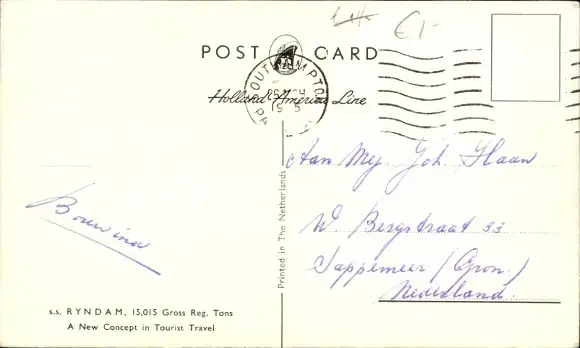 €1-
POST CARD
SOUTHAMPTON
Holland-America Line
Aan Mej. Joh. Haan
W. Bergstraat 33
Sappemeer (Gron.)
Nederland
Bouwina
Printed in The Netherlands
s.s. RYNDAM, 15,015 Gross Reg. Tons
A New Concept in Tourist Travel